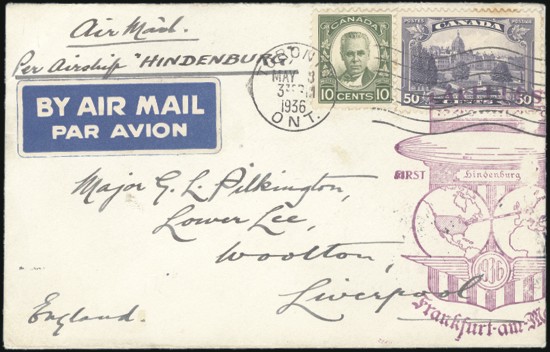 Air Mail.
Per Airship "HINDENBURG"
BY AIR MAIL
PAR AVION
POSTES POSTAGE
CANADA
CANADA
10 CENTS 10
50 CENTS 50
TORONTO
MAY
1936
ONT.
FIRST
Hindenburg
1936
Frankfurt-am-M
Major G. L. Pilkington,
Lower Lee,
Woolton,
Liverpool
England.